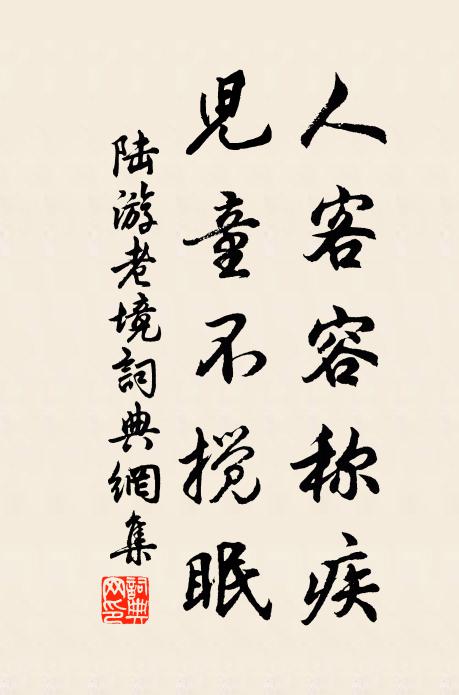 人客容称疾
児童不攪眠
陆游老境詞典網集
詞典网印